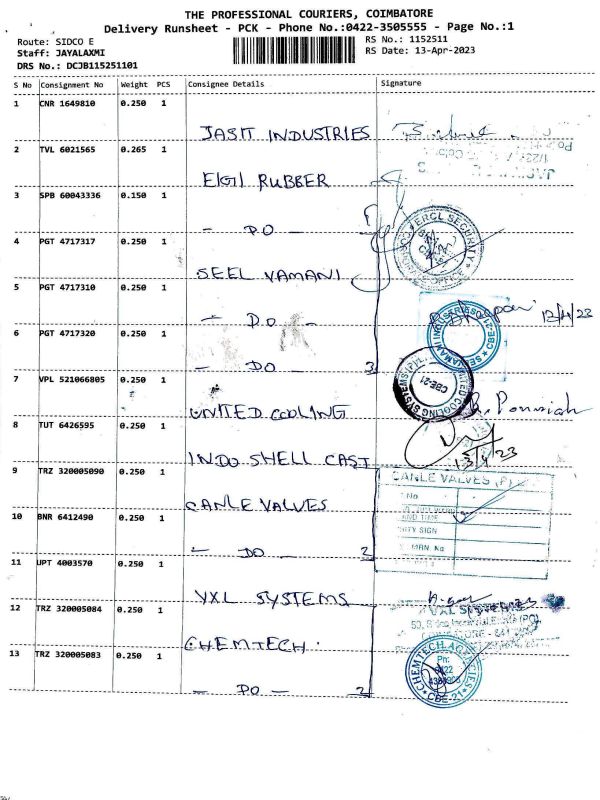 THE PROFESSIONAL COURIERS, COIMBATORE
Delivery Runsheet - PCK - Phone No.:0422-3505555 - Page No.:1
Route: SIDCO E
RS No.: 1152511
Staff: JAYALAXMI
RS Date: 13-Apr-2023
DRS No.: DCJB115251101
S No Consignment No Weight PCS Consignee Details Signature
1 CNR 1649810 0.250 1
JASH INDUSTRIES
2 TVL 6021565 0.265 1
ELGI RUBBER
3 SPB 60043336 0.150 1
- DO -
ERCL SECURITY
4 PGT 4717317 0.250 1
SEEL VAMANI
5 PGT 4717310 0.250 1
- DO -
6 PGT 4717320 0.250 1
- DO - 3
7 VPL 521066805 0.250 1
CBE-21
UNITED COOLING
8 TUT 6426595 1
INDO SHELL CAST
13/4/23
9 TRZ 320005090 0.250 1
CANLE VALVES (P)
CANLE VALVES
10 BNR 6412490 0.250 1
AND TIME
SIGN
- DO - 2
11 UPT 4003570 0.250 1
VXL SYSTEMS
12 TRZ 320005084 0.250 1
CHEMTECH.
13 TRZ 320005083 0.250 1
CHEMTECH AGENCIES
Ph:
0422
CBE-21
- DO - 2